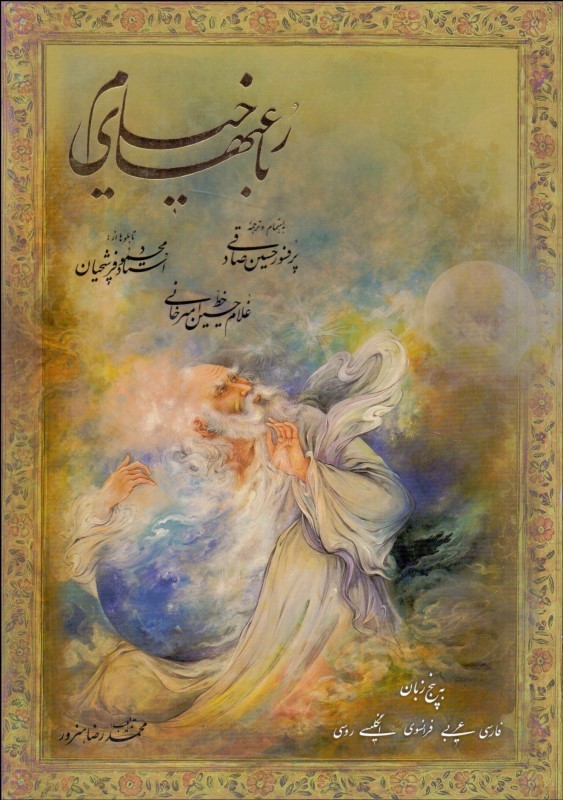 رباعیهای خیام
باهتمام و ترجمهٔ
پرفسور حسین صادقی
تابلوها از:
استاد محمود فرشچیان
خط
غلامحسین امیرخانی
به پنج زبان
فارسی عربی فرانسوی انگلیسی روسی
محمدرضا هنرور